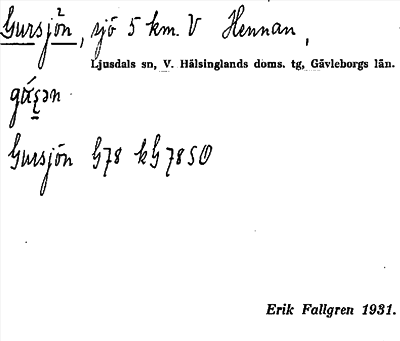 Gursjön, sjö 5 km. V Hennan,
Ljusdals sn, V. Hälsinglands doms. tg, Gävleborgs län.
Gursjön G78 kG 78 SO
Erik Fallgren 1931.